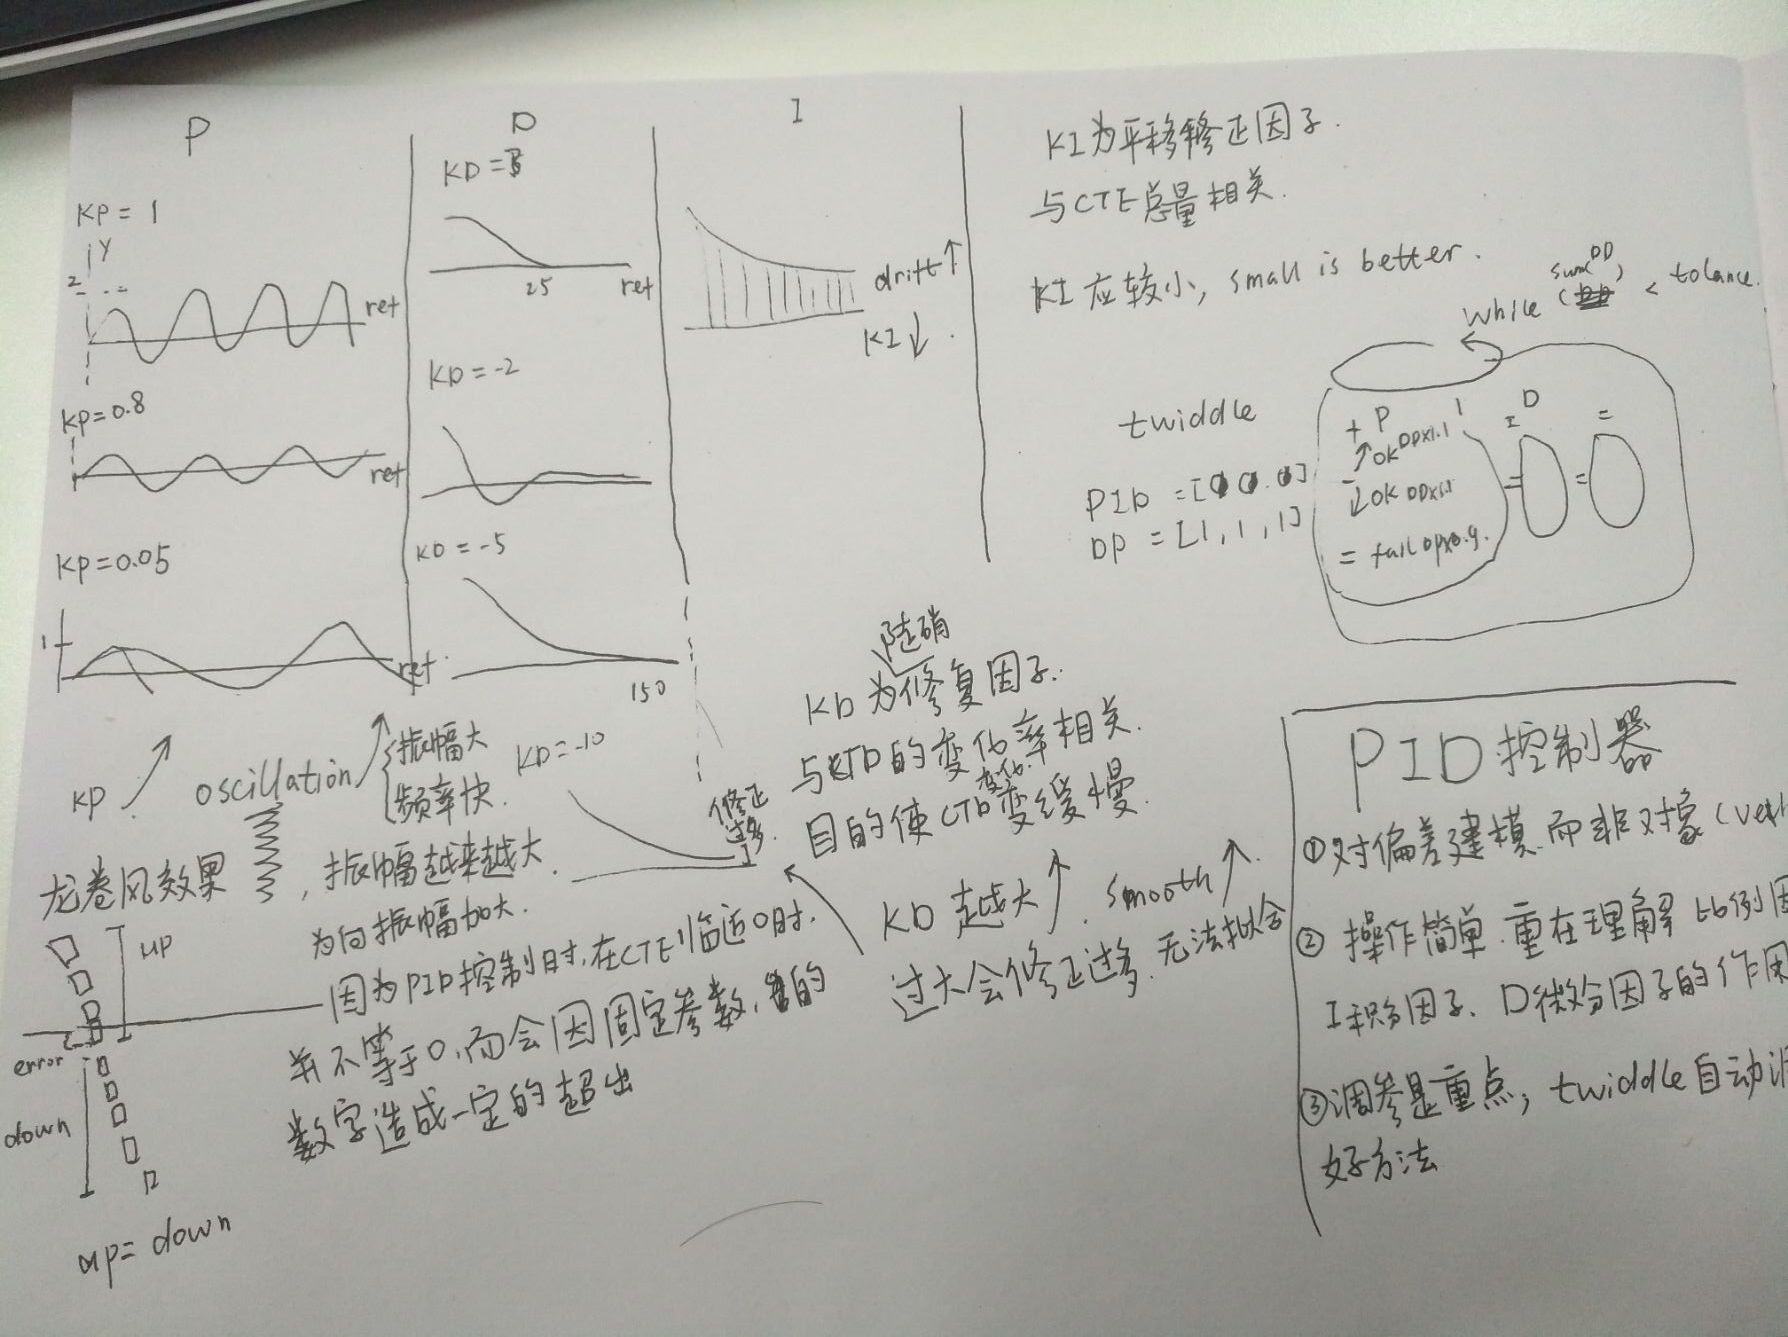 P
KP = 1
Y
2
ret
KP=0.8
ret
KP=0.05
1
ret
KP
oscillation
振幅大
频率快.
龙卷风效果
, 振幅越来越大.
为何振幅加大.
因为PID控制时,在CTE临近0时.
并不等于0,而会因固定参数,的
数字造成一定的超出
up
error
down
up= down
D
KD =
25
ret
KD = -2
KD = -5
150
KD = -10
修正
过多.
I
drift↑
KI↓.
KI为平移修正因子.
与CTE总量相关.
KI应较小, small is better.
while (sum(DD) < tolance.
twiddle
PID = [0 0. 0]
DP = [1, 1, 1]
+ P
I
D
OK DPX1.1
OK DPX1.1
= fail DPX0.9.
陡峭
KD为修复因子.
与CTD的变化率相关.
变化
目的使CTD变缓慢.
KD越大↑. Smooth↑.
过大会修正过多.无法拟合
PID控制器
①对偏差建模.而非对象(veh
②操作简单.重在理解 比例因
I积分因子. D微分因子的作用
③调参是重点, twiddle自动调
好方法